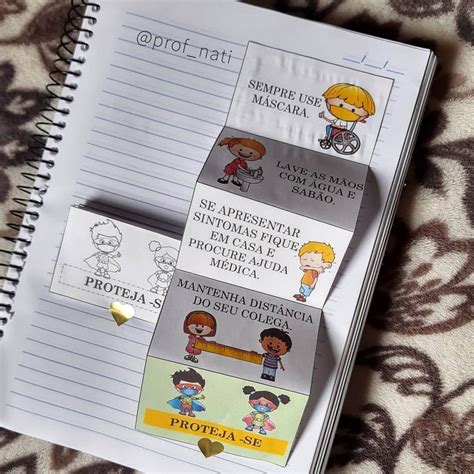 @prof_nati
SEMPRE USE
MÁSCARA.
LAVE AS MÃOS
COM ÁGUA E
SABÃO.
SE APRESENTAR
SINTOMAS FIQUE
EM CASA E
PROCURE AJUDA
MÉDICA.
MANTENHA DISTÂNCIA
DO SEU COLEGA.
PROTEJA -S
PROTEJA -SE